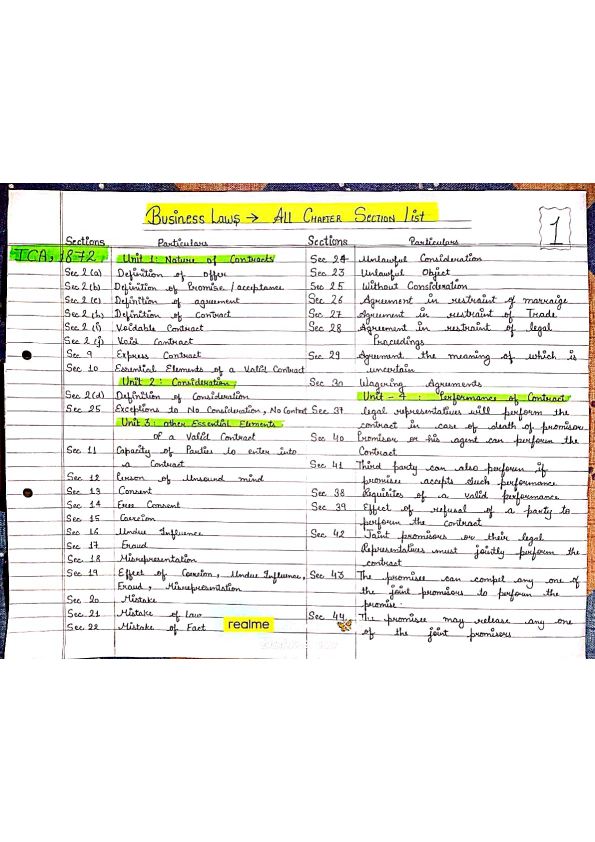 Business Laws → All Chapter Section List
1
Sections Particulars
ICA, 1872 Unit 1: Nature of Contracts
Sec 2(a) Definition of offer
Sec 2(b) Definition of Promise/acceptance
Sec 2(e) Definition of agreement
Sec 2(h) Definition of contract
Sec 2(i) Voidable Contract
Sec 2(j) Void Contract
Sec 9 Express Contract
Sec 10 Essential Elements of a Valid Contract
Unit 2: Consideration
Sec 2(d) Definition of Consideration
Sec 25 Exceptions to No Consideration, No Contract
Unit 3: other Essential Elements
of a Valid Contract
Sec 11 Capacity of Parties to enter into
a Contract
Sec 12 Person of Unsound mind
Sec 13 Consent
Sec 14 Free Consent
Sec 15 Coercion
Sec 16 Undue Influence
Sec 17 Fraud
Sec 18 Misrepresentation
Sec 19 Effect of Coercion, Undue Influence,
Fraud, Misrepresentation
Sec 20 Mistake
Sec 21 Mistake of Law
Sec 22 Mistake of Fact
realme
Sections Particulars
Sec 24 Unlawful Consideration
Sec 23 Unlawful Object
Sec 25 Without Consideration
Sec 26 Agreement in restraint of marraige
Sec 27 Agreement in restraint of Trade
Sec 28 Agreement in restraint of legal
Proceedings
Sec 29 Agreement the meaning of which is
uncertain
Sec 30 Wagering Agreements
Unit - 4 : Performance of Contract
Sec 37 legal representatives will perform the
contract in case of death of promisor
Sec 40 Promisor or his agent can perform the
Contract
Sec 41 Third party can also perform if
promisee accepts such performance
Sec 38 Requisites of a valid performance
Sec 39 Effect of refusal of a party to
perform the contract
Sec 42 Joint promisors or their legal
Representatives must jointly perform the
contract
Sec 43 The promisee can compel any one of
the joint promisors to perform the
promise.
Sec 44 The promisee may release any one
of the joint promisors